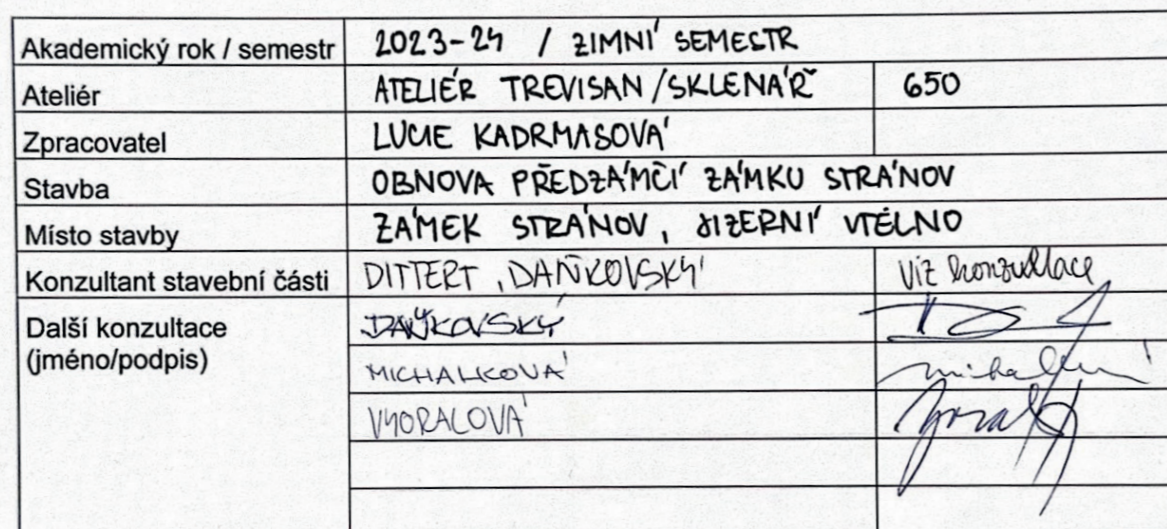 Akademický rok / semestr 2023-24 / ZIMNÍ SEMESTR
Ateliér ATELIÉR TREVISAN/SKLENÁŘ 650
Zpracovatel LUCIE KADRMASOVÁ
Stavba OBNOVA PŘEDZÁMČÍ ZÁMKU STRÁNOV
Místo stavby ZÁMEK STRÁNOV, JIZERNÍ VTELNO
Konzultant stavební části DITTERT, DAŇKOVSKÝ VIZ konzultace
Další konzultace DAŇKOVSKÝ
(jméno/podpis) MICHALKOVÁ
VYORALOVÁ